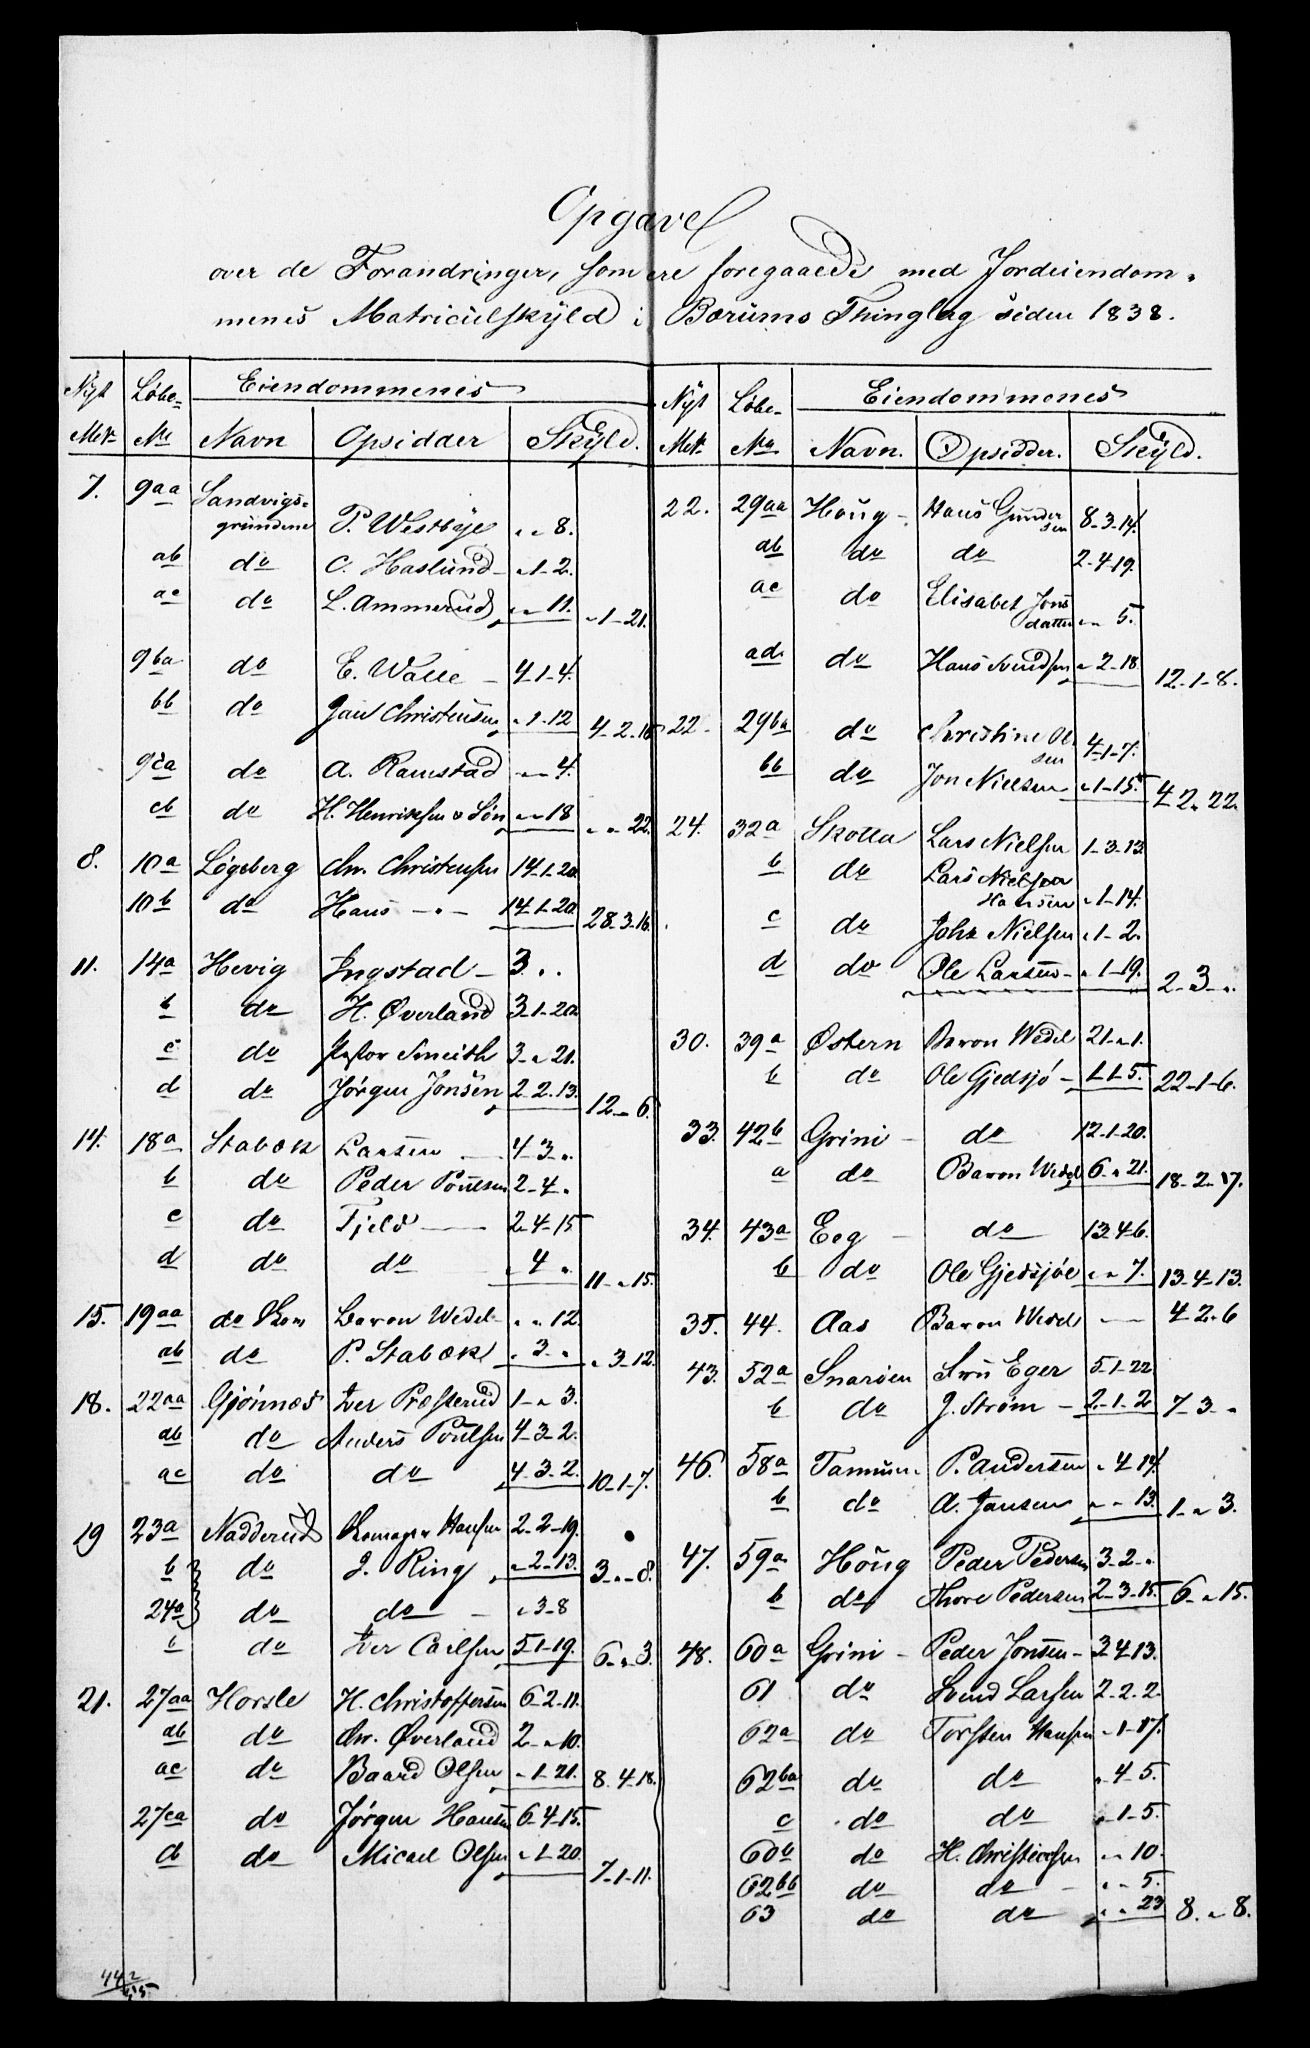 Opgave
over de Forandringer, som ere foregaaede med Jordeiendom-
menes Matriculskÿld i Bærums Thinglag siden 1838.
Nyt Løbe- Eiendommenes
Matr. No Navn Opsidder Skÿld.
7. 9aa Sandvigs-
grundene P. Westbÿe " " 8.
ab do C. Haslund "-1-2.
ac do L. Ammerud " " 11. "-1-21.
9ba do E. Walle 4-1-4.
bb do Jan Christensen "-1-12 4-2-16
9ca do A. Ramstad " " 4.
cb do H. Henriksen & Søn " " 18 " " 22.
8. 10a Løgeberg Chr. Christensen 14-1-20
10b do Hans - " - 14-1-20 28-3-16.
11. 14a Hevig Ingstad 3 " "
b do H. Øverland 3-1-20
c do Pastor Smith 3 " 21.
d do Jørgen Jonsen 2-2-13. 12 - " 6.
14. 18a Stabæk Larsen 4-3 "
b do Peder Poulsen 2-4 "
c do Fjeld 2-4-15
d do do " 4 " 11 " 15.
15. 19aa do Baron Wedel " " 12.
ab do P. Stabæk " 3 " " 3-12.
18. 22aa Gjønnæs Iver Præsterud 1 " 3.
ab do Anders Poulsen 4-3-2.
ac do do 4-3-2. 10-1-7.
19 23a Nadderud Hansen 2-2-19.
b do J. Ring "-2-13. 3 " 8.
24a do do " 3-8
b do Iver Carlsen 5-1-19. 6 " 3.
21. 27aa Horsle H. Christoffersen 6-2-11.
ab do Chr. Øverland 2 - " 10.
ac do Baard Olsen "-1-21. 8-4-18.
27ca do Jørgen Hansen 6-4-15.
cb do Micael Olsen " 1-20. 7-1-11.
Nÿt Løbe- Eiendommenes
Matr. No Navn. Opsidder. Skÿld.
22. 29aa Houg Hans Gunder
sen 8-3-14.
ab do do 2-4-19.
ac do Elisabet Jons
datter " " 5.
ad do Hans Svendsen " 2-18. 12-1-8.
22. 29ba do Christine Ol
sen 4-1-7.
bb do Jon Nielsen " 1-15. 4-2-22
24. 32a Skolla Lars Nielsen 1-3-13.
b do Lars
Hansen " 1-14.
c do Johs Nielsen " 1-2.
d do Ole Larsen " 1-19. 2-3-"
30. 39a Østern Baron Wedel 21 " 1.
b do Ole Gjedsjø 1-1-5. 22-1-6.
33. 42b Grini do 12-1-20.
a do Baron Wedel 6 " 21. 18-2-17.
34. 43a Eeg do 13-4-6.
b do Ole Gjedsjøe " " 7. 13-4-13.
35. 44. Aas Baron Wedel 4-2-6
43. 52a Snarøen Fru Eger 5-1-22
b do J. Strøm 2-1-2 7-3 "
46. 58a Tanum P. Andersen " 4-14.
b do A. Jansen " " 13. 1 " 3.
47. 59a Houg Peder Pedersen 3-2 "
b do Thore Pedersen 2-3-15. 6 " 15.
48. 60a Grini Peder Jonsen 3-4-13.
61 do Svend Larsen 2-2-2.
62a do Torsten Hansen " 1-17.
62ba do do " 4-5.
c do do " 1-5.
60b do H. Christensen " " 10.
62bb do do " " 5.
63 do do " " 23 8 " 8.